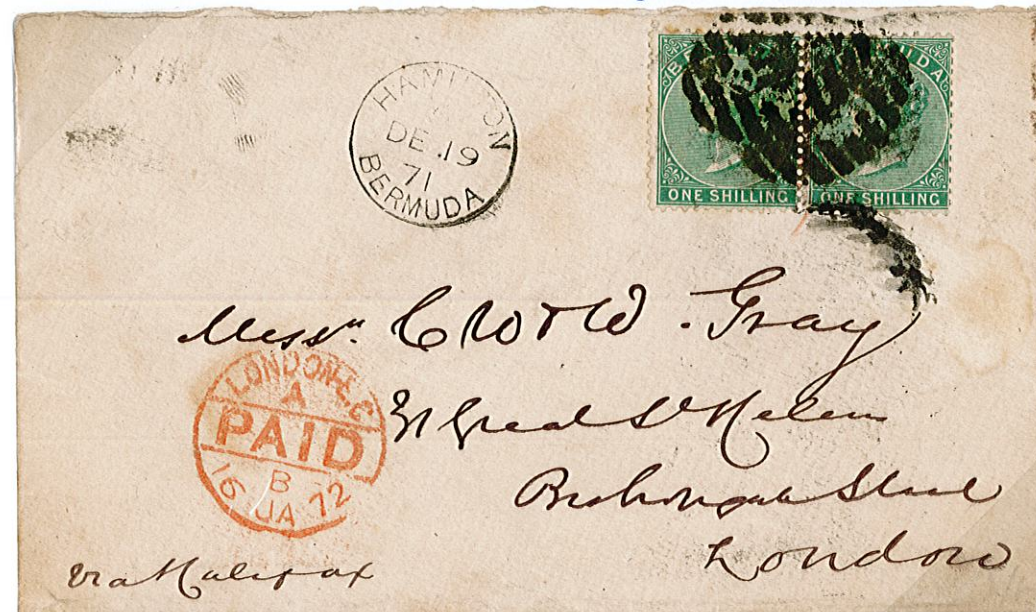 HAMILTON
DE 19
71
BERMUDA
BERMUDA
ONE SHILLING ONE SHILLING
Messrs. C W & W. Gray
31 Great St Helens
Bishopsgate Street
London
LONDON-E.C
A
PAID
B
16 JA 72
via Halifax